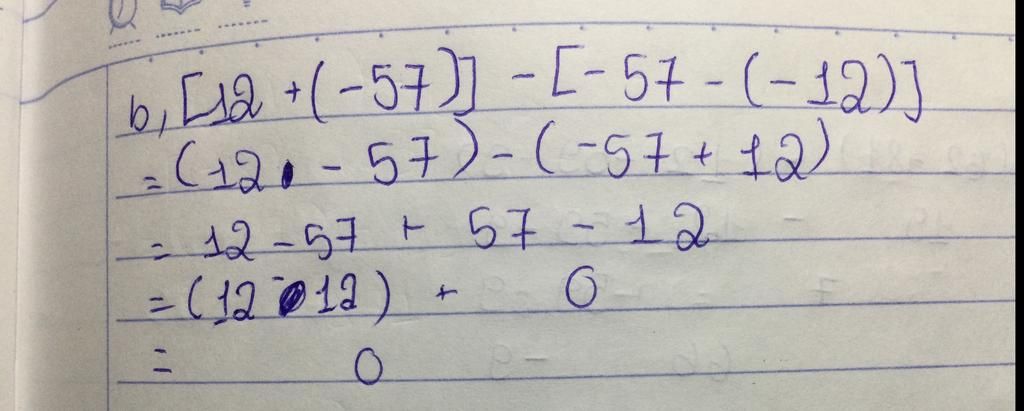 b, [12 + (-57)] - [-57 - (-12)]
= (12 - 57) - (-57 + 12)
= 12 - 57 + 57 - 12
= (12 - 12) + 0
= 0